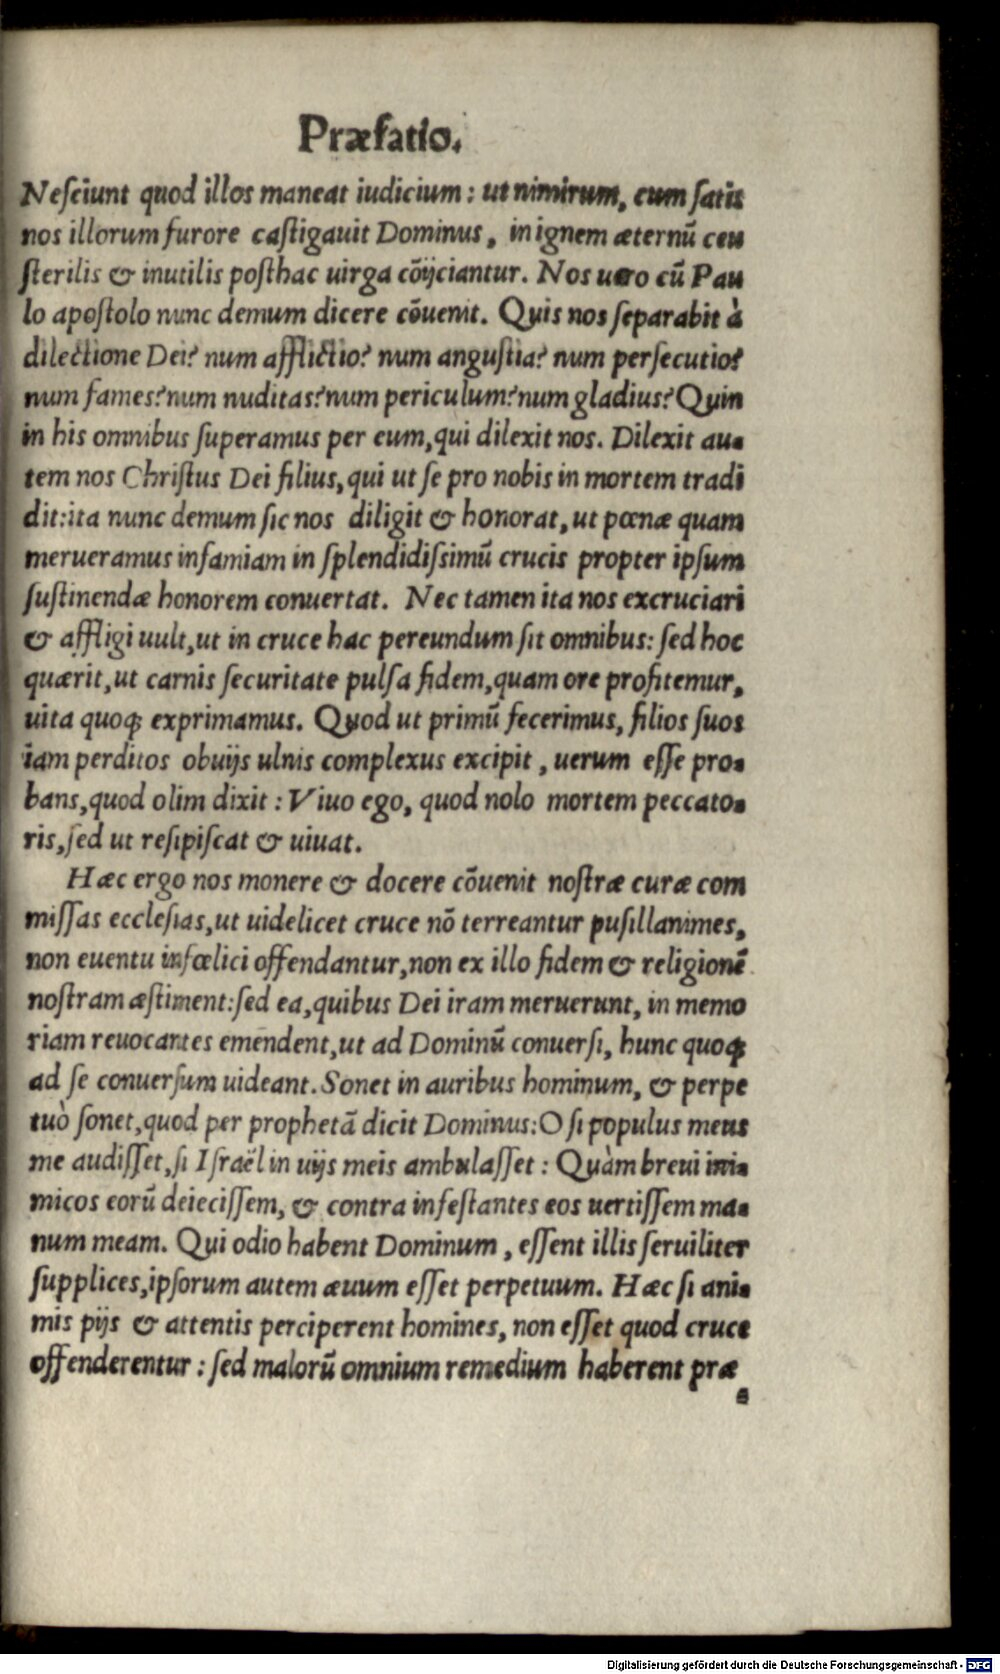 Præfatio.
Neſciunt quod illos maneat iudicium: ut nimirum, cum ſatis
nos illorum furore caſtigauit Dominus, in ignem æternū ceu
ſterilis & inutilis poſthac uirga cōijciantur. Nos uero cū Pau
lo apoſtolo nunc demum dicere cōuenit. Quis nos ſeparabit à
dilectione Dei? num afflictio? num anguſtia? num perſecutio?
num fames? num nuditas? num periculum? num gladius? Quin
in his omnibus ſuperamus per eum, qui dilexit nos. Dilexit au⸗
tem nos Chriſtus Dei filius, qui ut ſe pro nobis in mortem tradi
dit: ita nunc demum ſic nos diligit & honorat, ut pœnæ quam
merueramus infamiam in ſplendidiſſimū crucis propter ipſum
ſuſtinendæ honorem conuertat. Nec tamen ita nos excruciari
& affligi uult, ut in cruce hac pereundum ſit omnibus: ſed hoc
quærit, ut carnis ſecuritate pulſa fidem, quam ore profitemur,
uita quoq; exprimamus. Quod ut primū fecerimus, filios ſuos
iam perditos obuijs ulnis complexus excipit, uerum eſſe pro⸗
bans, quod olim dixit: Viuo ego, quod nolo mortem peccato⸗
ris, ſed ut reſipiſcat & uiuat.
Hæc ergo nos monere & docere cōuenit noſtræ curæ com
miſſas eccleſias, ut uidelicet cruce nō terreantur puſillanimes,
non euentu infœlici offendantur, non ex illo fidem & religionē
noſtram æſtiment: ſed ea, quibus Dei iram meruerunt, in memo
riam reuocantes emendent, ut ad Dominū conuerſi, hunc quoq;
ad ſe conuerſum uideant. Sonet in auribus hominum, & perpe
tuò ſonet, quod per prophetā dicit Dominus: O ſi populus meus
me audiſſet, ſi Iſraël in uijs meis ambulaſſet: Quàm breui ini⸗
micos eorū deieciſſem, & contra infeſtantes eos uertiſſem ma⸗
num meam. Qui odio habent Dominum, eſſent illis ſeruiliter
ſupplices, ipſorum autem æuum eſſet perpetuum. Hæc ſi ani⸗
mis pijs & attentis perciperent homines, non eſſet quod cruce
offenderentur: ſed malorū omnium remedium haberent præ
⸗
Digitalisierung gefördert durch die Deutsche Forschungsgemeinschaft - DFG